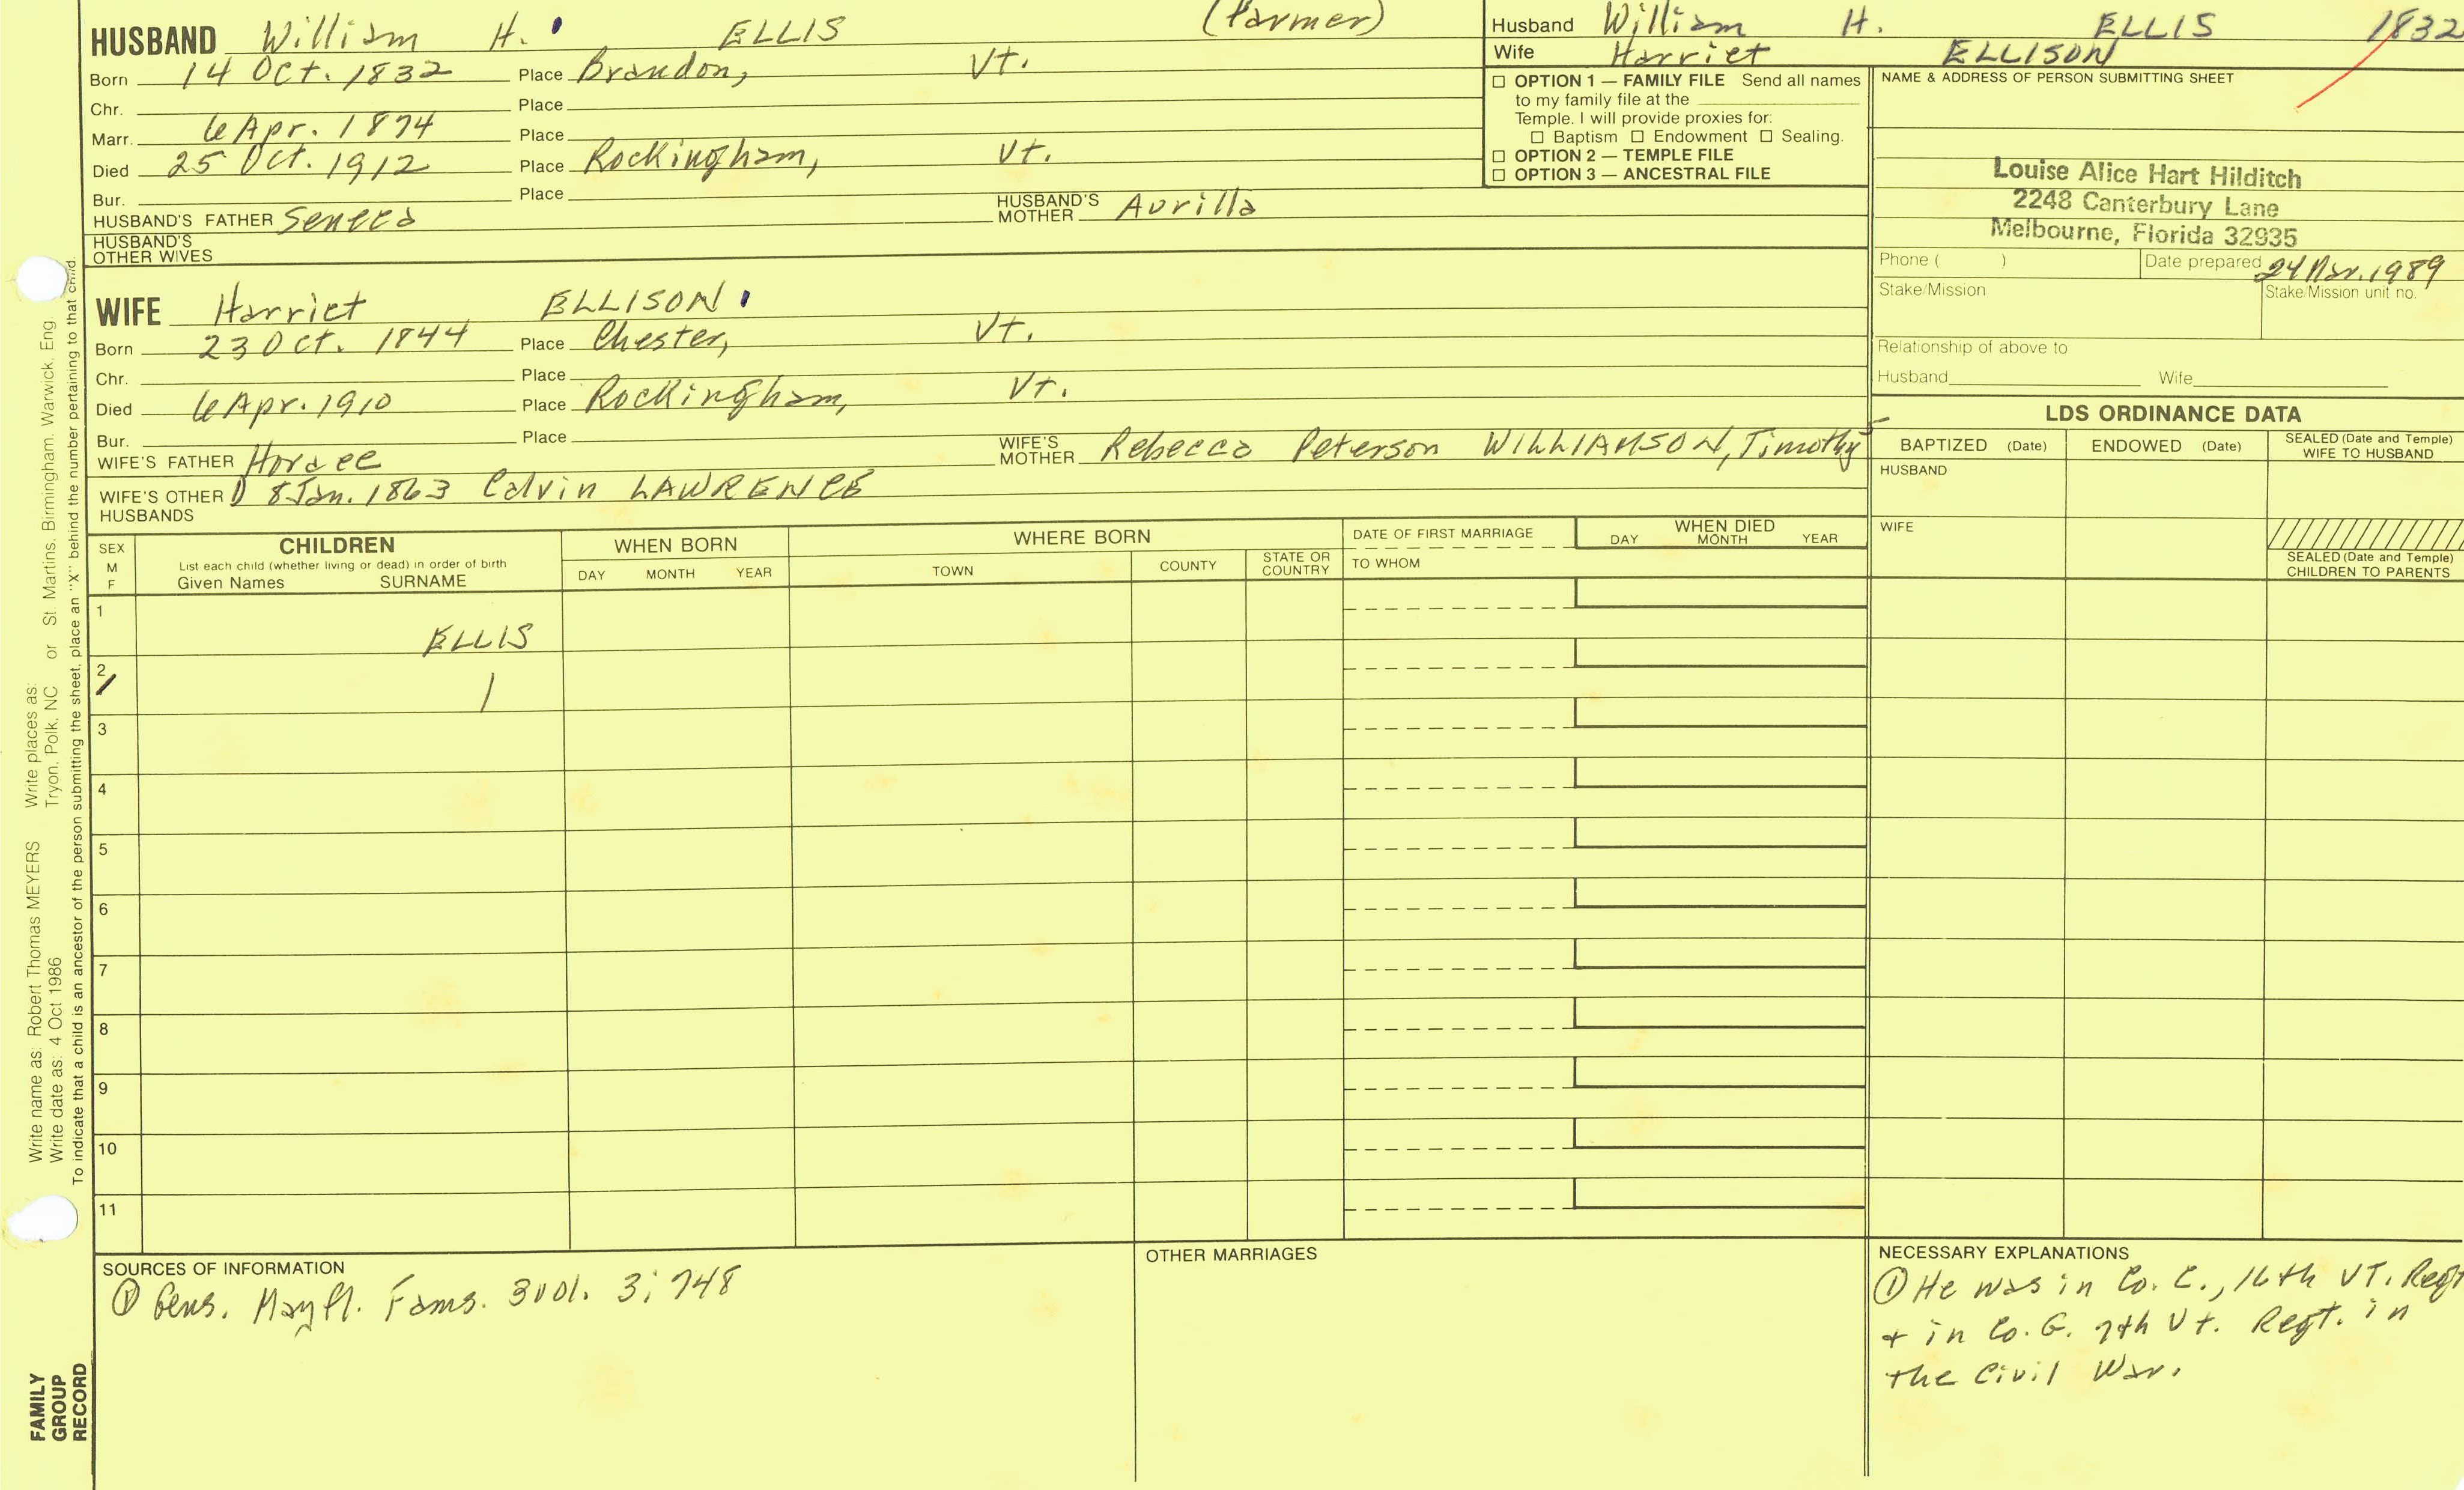 HUSBAND William H. ELLIS (Farmer)
Born 14 Oct. 1832 Place Brandon, Vt.
Chr. Place
Marr. 6 Apr. 1874 Place
Died 25 Oct. 1912 Place Rockingham, Vt.
Bur. Place
HUSBAND'S FATHER Seneca HUSBAND'S MOTHER Aurilla
HUSBAND'S OTHER WIVES
WIFE Harriet ELLISON
Born 23 Oct. 1844 Place Chester, Vt.
Chr. Place
Died 6 Apr. 1910 Place Rockingham, Vt.
Bur. Place
WIFE'S FATHER Horace WIFE'S MOTHER Rebecca Peterson WILLIAMSON, Timothy5
WIFE'S OTHER HUSBANDS D 8 Jan. 1863 Calvin LAWRENCE
Husband William H. ELLIS 1832
Wife Harriet ELLISON
☐ OPTION 1 — FAMILY FILE Send all names
to my family file at the
Temple. I will provide proxies for:
☐ Baptism ☐ Endowment ☐ Sealing.
☐ OPTION 2 — TEMPLE FILE
☐ OPTION 3 — ANCESTRAL FILE
NAME & ADDRESS OF PERSON SUBMITTING SHEET
Louise Alice Hart Hilditch
2248 Canterbury Lane
Melbourne, Florida 32935
Phone ( ) Date prepared 24 Mar. 1989
Stake/Mission Stake/Mission unit no.
Relationship of above to
Husband Wife
LDS ORDINANCE DATA
BAPTIZED (Date) ENDOWED (Date) SEALED (Date and Temple) WIFE TO HUSBAND
HUSBAND
WIFE
SEALED (Date and Temple) CHILDREN TO PARENTS
SEX M F
CHILDREN
List each child (whether living or dead) in order of birth
Given Names SURNAME
WHEN BORN
DAY MONTH YEAR
WHERE BORN
TOWN COUNTY STATE OR COUNTRY
DATE OF FIRST MARRIAGE
TO WHOM
WHEN DIED
DAY MONTH YEAR
1 ELLIS
2
3
4
5
6
7
8
9
10
11
SOURCES OF INFORMATION
① Gens. Mayfl. Fams. 3 vol. 3; 748
OTHER MARRIAGES
NECESSARY EXPLANATIONS
① He was in Co. C., 16th VT. Regt
+ in Co. G. 7th Vt. Regt. in
the Civil War.
Write name as: Robert Thomas MEYERS Write places as: Tryon, Polk, NC or St Martins, Birmingham, Warwick, Eng
Write date as: 4 Oct 1986
To indicate that a child is an ancestor of the person submitting the sheet, place an "X" behind the number pertaining to that child
FAMILY
GROUP
RECORD